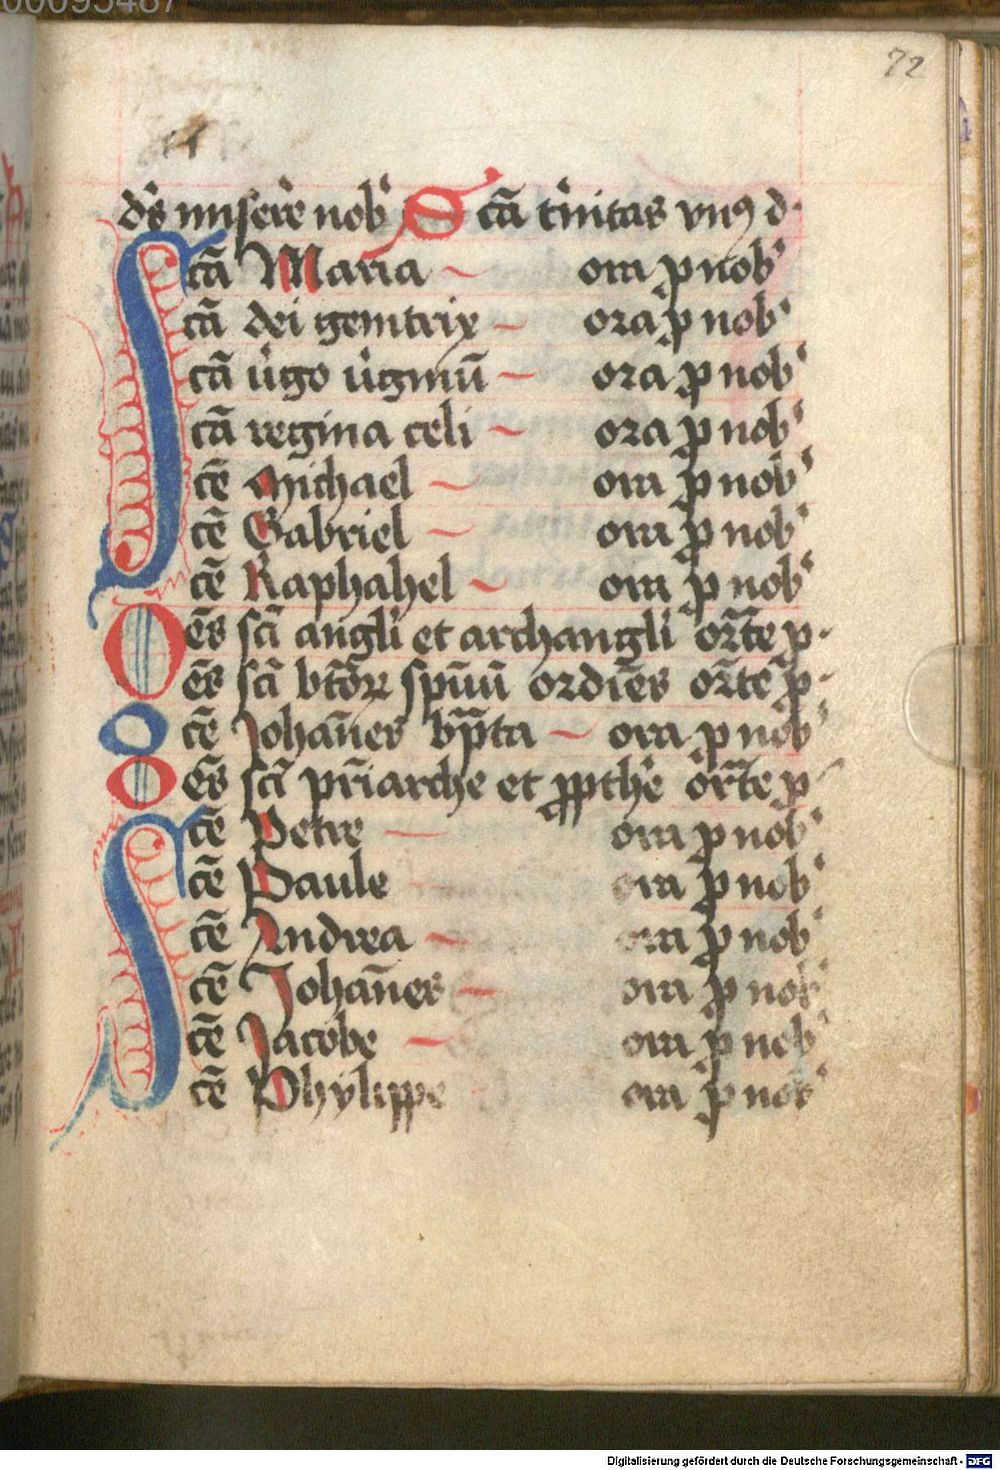 00095487
72
ds̄ miser̄e nob᷒ Scā tⁱnitas vnꝰ d·
Scā Maria – ora ꝓ nob᷒
cā dei genitrix – ora ꝓ nob᷒
cā uⁱgo uⁱginū – ora ꝓ nob᷒
cā regina celi – ora ꝓ nob᷒
cē Michael – ora ꝓ nob᷒
cē Gabriel – ora ꝓ nob᷒
cē Raphahel – ora ꝓ nob᷒
Oēs sci̅ angli̅ et archangli̅ or̄te ꝓ·
ēs sci̅ bto̅ꝝ spūū ordi̅es or̄te ꝓ·
Scē Johan̄es bp̄ta – ora ꝓ nob᷒
Oēs sci̅ pr̄iarche et ꝓph̄e or̄te ꝓ·
Scē Petre – ora ꝓ nob᷒
cē Paule ora ꝓ nob᷒
cē Andrea – ora ꝓ nob᷒
cē Johan̄es – ora ꝓ nob᷒
cē Jacobe – ora ꝓ nob᷒
cē Phylippe ora ꝓ nob᷒
Digitalisierung gefördert durch die Deutsche Forschungsgemeinschaft - DFG